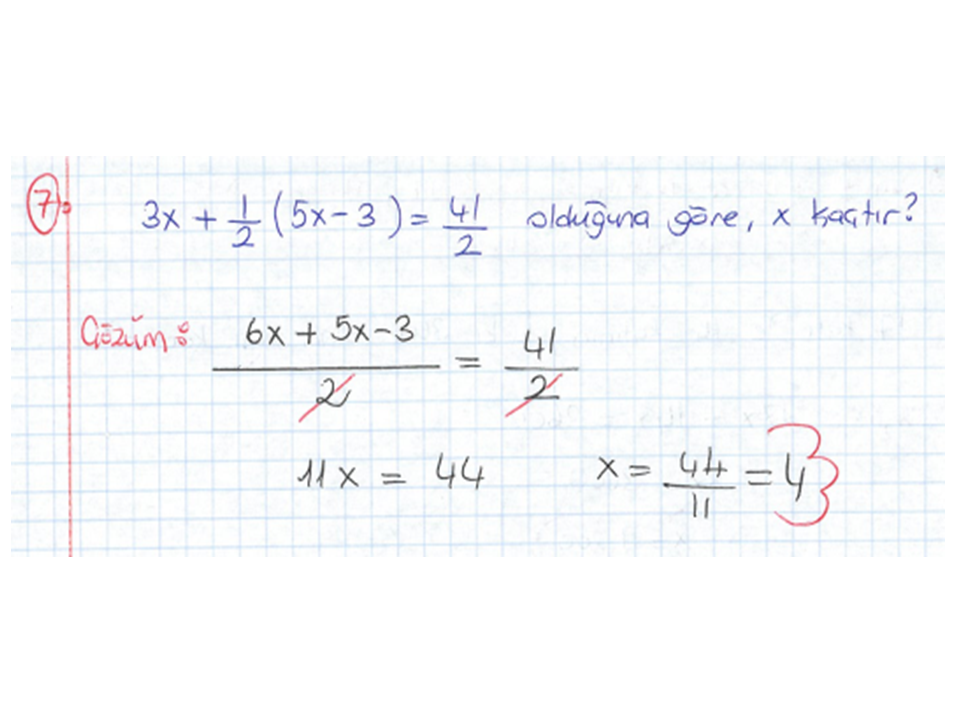 7. 3x + 1/2 (5x - 3) = 41/2 olduğuna göre, x kaçtır?
Çözüm: (6x + 5x - 3)/2 = 41/2
11x = 44 x = 44/11 = 4